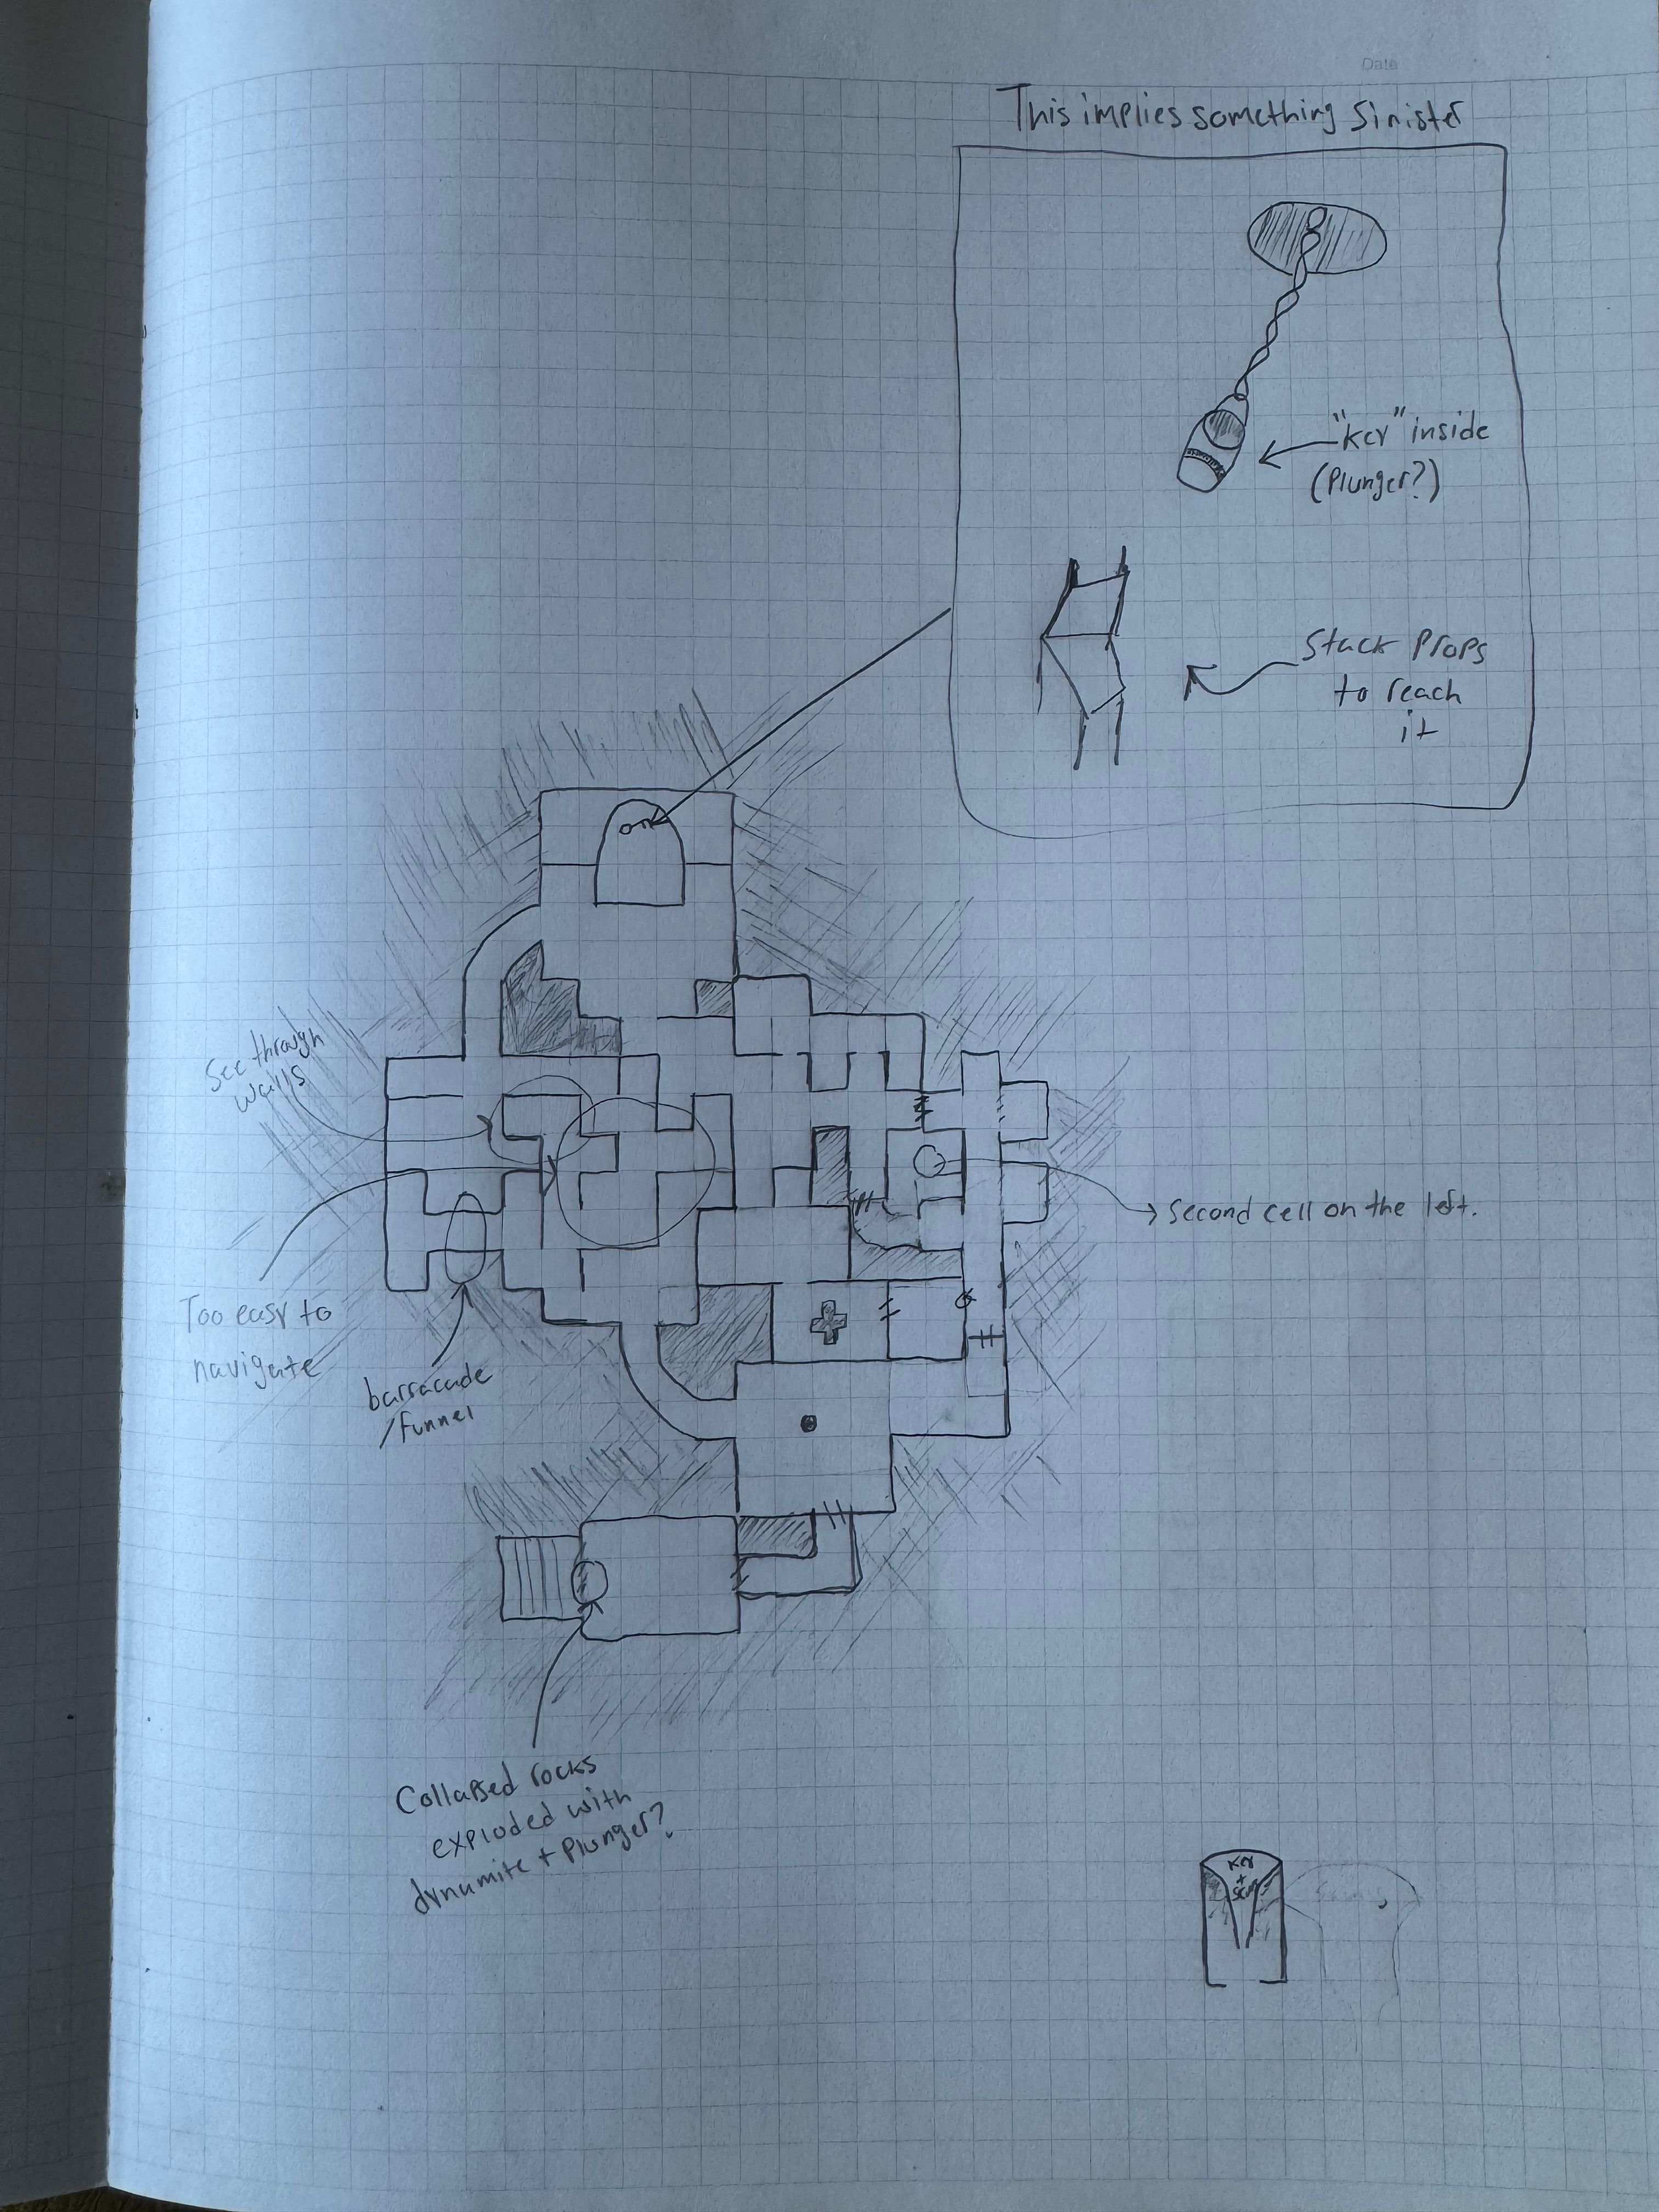 Date
This implies something Sinister
"key" inside
(Plunger?)
Stack Props
to reach
it
See through
walls
Second cell on the left.
Too easy to
navigate
barracade
/funnel
Collapsed rocks
exploded with
dynamite + Plunger?
Key
+